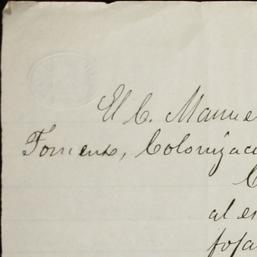 El C. Manue
Fomento, Colonizac
C
al es
fofa